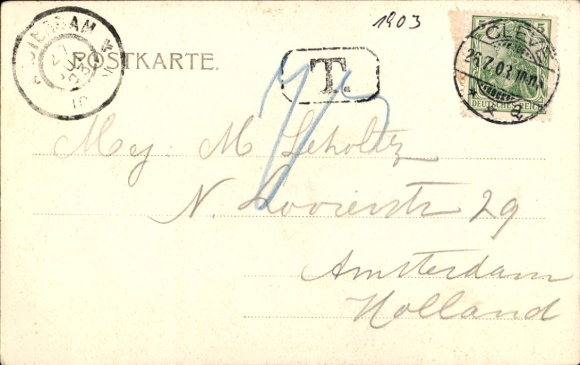 1903
AMSTERDAM
POSTKARTE.
T.
CLEVE
26.7.03
DEUTSCHES REICH
5 5
Mej. M Scholtz
N. Looierstr 29
Amsterdam
Holland